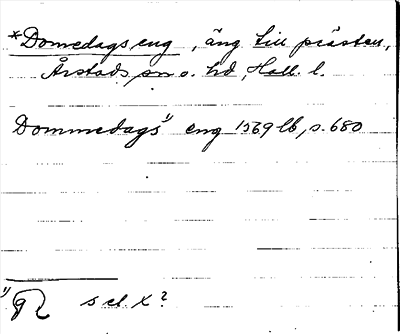 *Domedags eng, äng till prästen,
Årstads sn o. hd, Hall. l.
Dommedags¹⁾ eng 1569 lb, s. 680
¹⁾ s el. x?